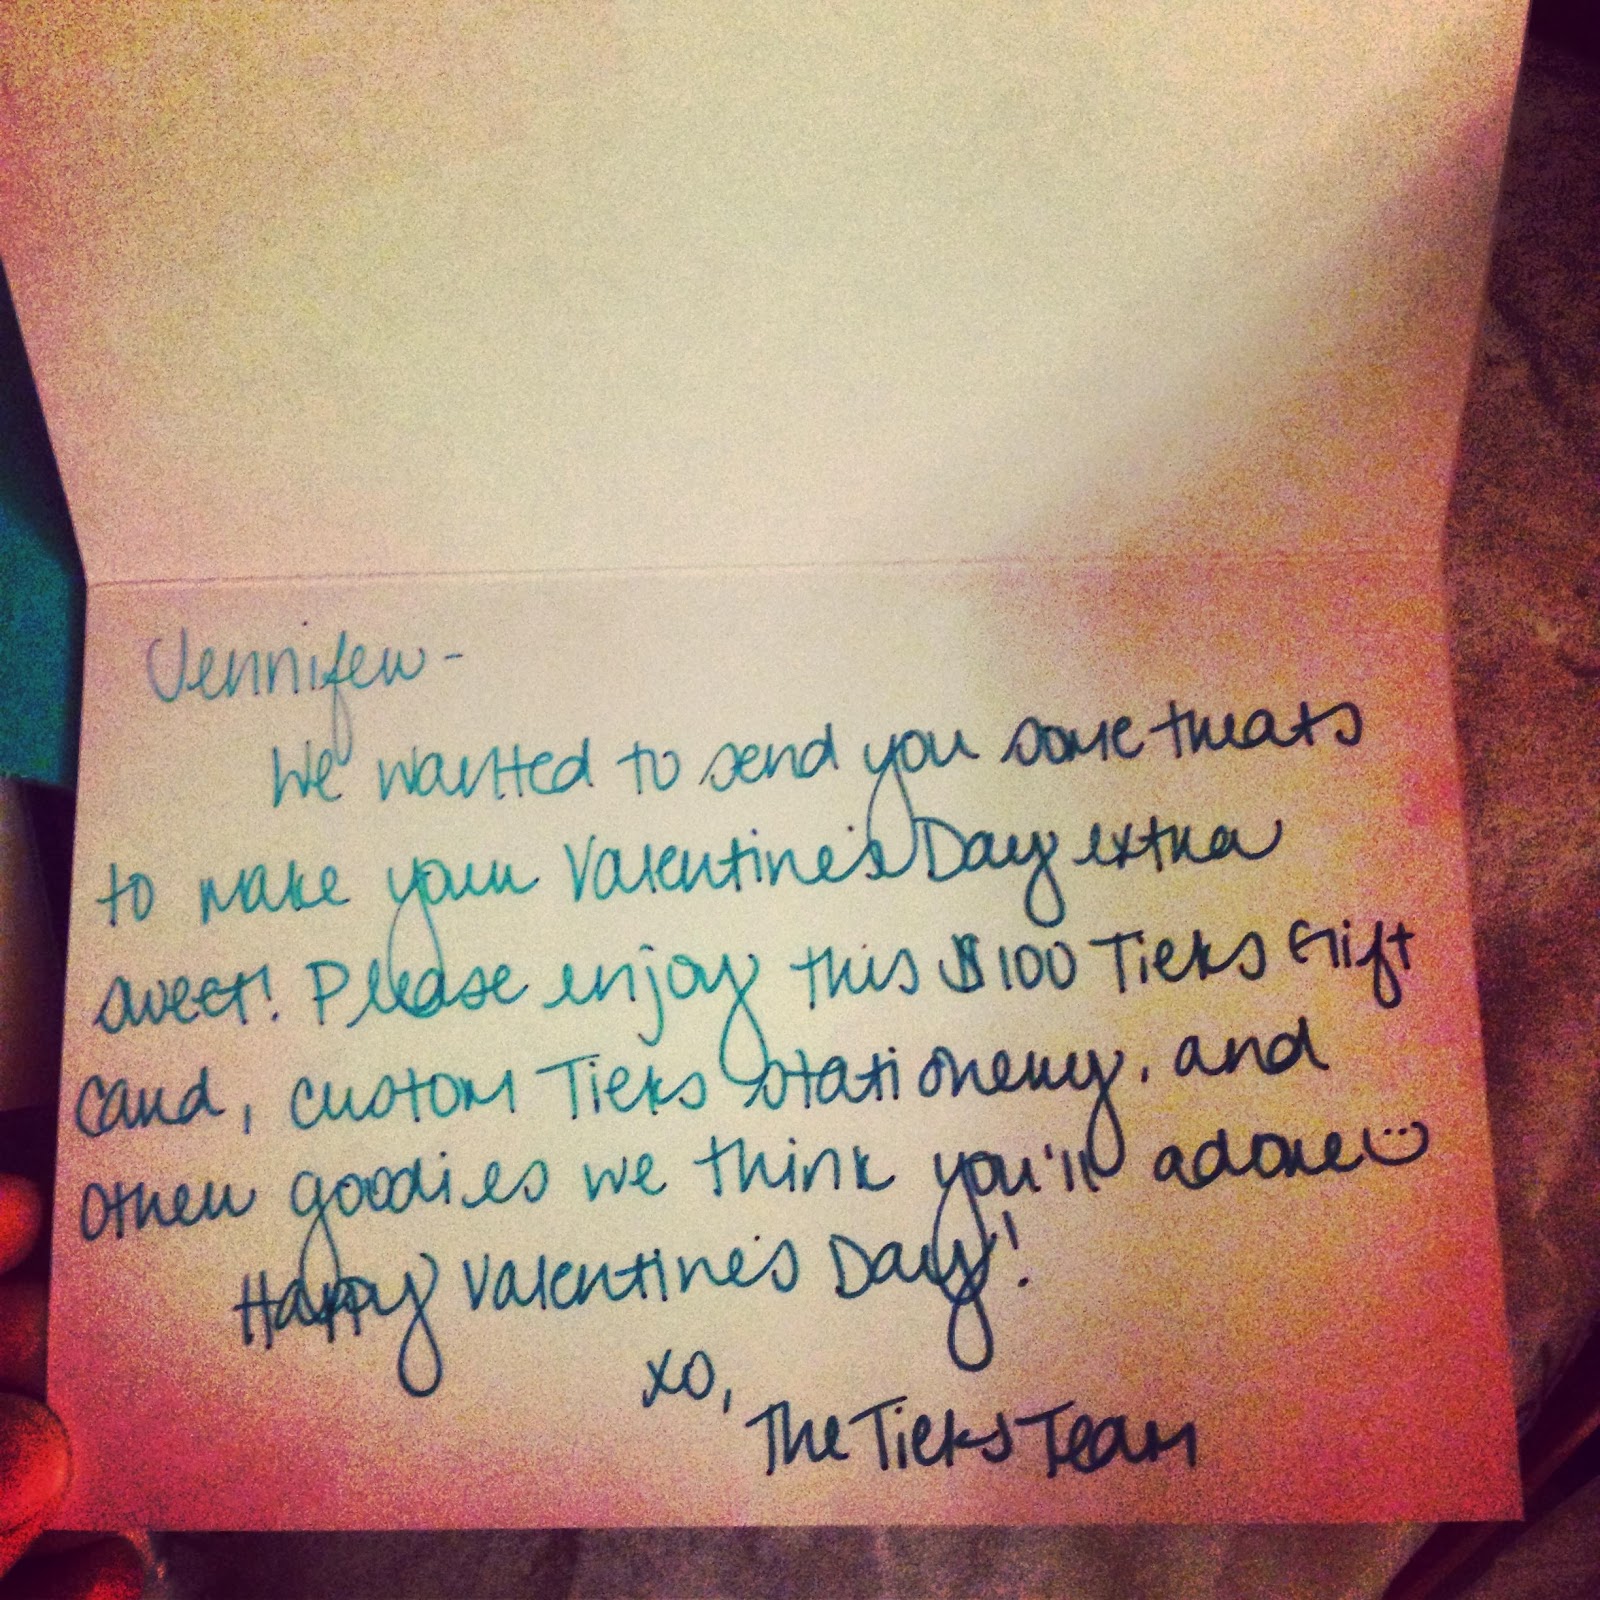 Jennifer-
We wanted to send you some treats
to make your Valentine's Day extra
sweet! Please enjoy this $100 Tieks Gift
Card, custom Tieks stationery, and
other goodies we think you'll adore :)
Happy Valentine's Day!
xo,
The Tieks Team